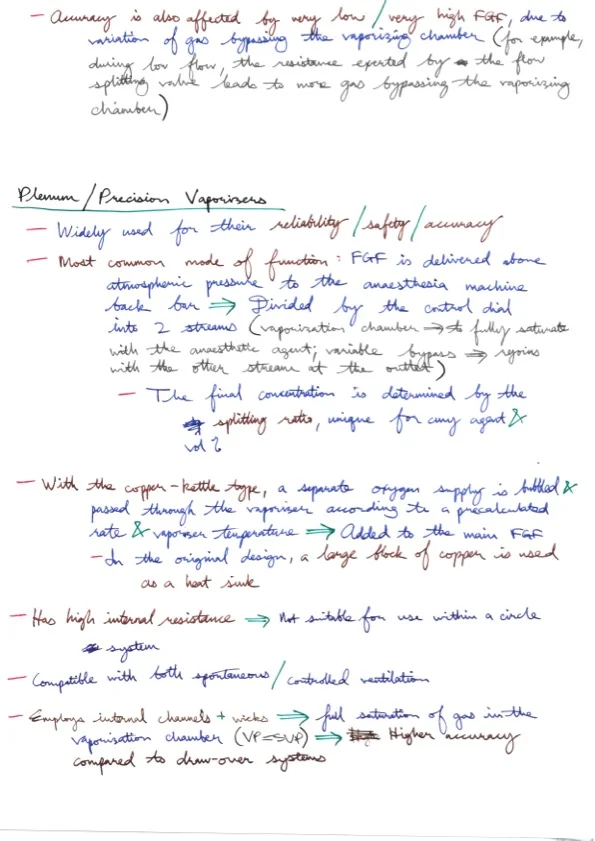 — Accuracy is also affected by very low / very high FGF, due to
variation of gas bypassing the vaporizing chamber (for example,
during low flow, the resistance exerted by the flow
splitting valve leads to more gas bypassing the vaporizing
chamber)
Plenum / Precision Vaporisers
— Widely used for their reliability / safety / accuracy
— Most common mode of function : FGF is delivered above
atmospheric pressure to the anaesthesia machine
back bar ⇒ Divided by the control dial
into 2 streams (vaporization chamber → to fully saturate
with the anaesthetic agent; variable bypass → rejoins
with the other stream at the outlet)
— The final concentration is determined by the
splitting ratio, unique for any agent &
vol %
— With the copper-kettle type, a separate oxygen supply is bubbled &
passed through the vaporiser according to a precalculated
rate & vaporiser temperature ⇒ Added to the main FGF
— In the original design, a large block of copper is used
as a heat sink
— Has high internal resistance ⇒ Not suitable for use within a circle
system
— Compatible with both spontaneous / controlled ventilation
— Employs internal channels + wicks ⇒ full saturation of gas in the
vaporisation chamber (VP=SVP) ⇒ Higher accuracy
compared to draw-over systems